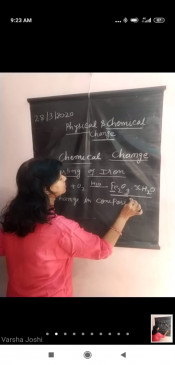 9:23 AM
28/3/2020
Physical & Chemical
Change
Chemical Change
of Iron
+ O2 H2O Fe2O3 xH2O
in
Varsha Joshi